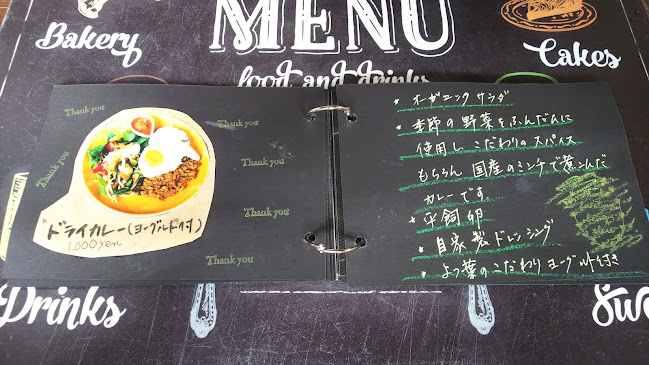 MENU
food and drinks
Bakery
Cakes
Thank you
Thank you
Thank you
Thank you
Thank you
Thank you
ドライカレー(ヨーグルト付)
1,000yen
* オーガニックサラダ
* 季節の野菜をふんだんに
使用し、こだわりのスパイス
もちろん国産のミンチで煮込んだ
カレーです。
* 平飼卵
* 自家製ドレッシング
* よつ葉のこだわりヨーグルト付き
Drinks
Swe